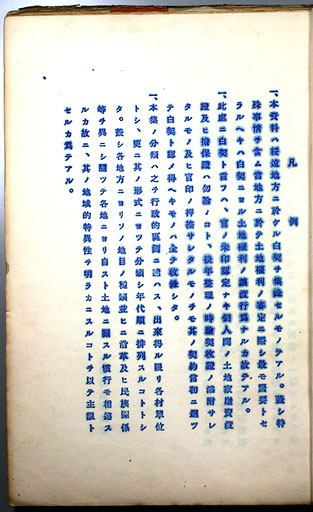 凡例
一、本資料ハ綏遠地方ニ於ケル白契ヲ集錄セルモノデアル。蓋シ特
殊事情ヲ含ム當地方ニ於テ土地權利ノ審定ニ際シ最モ重要トセ
ラルベキハ白契ニヨル土地權利ノ讓渡行爲ナルカ故デアル。
一、此處ニ白契ト言フハ、官ノ朱印認定ナキ個人間ノ土地家屋賣渡
證及ヒ擔保證ハ勿論ノコト、後年整理ノ時驗契收證ノ添附サレ
タルモノ及ヒ官印ノ押捺サレタルモノヲモ其ノ契約當初ニ遡ツ
テ白契ト認メ得ヘキモノハ全テ收錄シタ。
一、本集ノ分類ハ之ヲ行政的區劃ニ從ハス、出來得ル限リ各村單位
トシ、更ニ其ノ形式ニヨツテ分類シ年代順ニ排列スルコトトシ
タ。蓋シ各地方ニヨリソノ地目ノ種類並ヒニ沿革及ヒ民族關係
等ヲ異ニシ隨ツテ各地ニヨリ自ラ土地ニ關スル慣行モ相違ス
ルカ故ニ、其ノ地域的特異性ヲ明ラカニスルコトヲ以テ主眼ト
セルカ爲テアル。